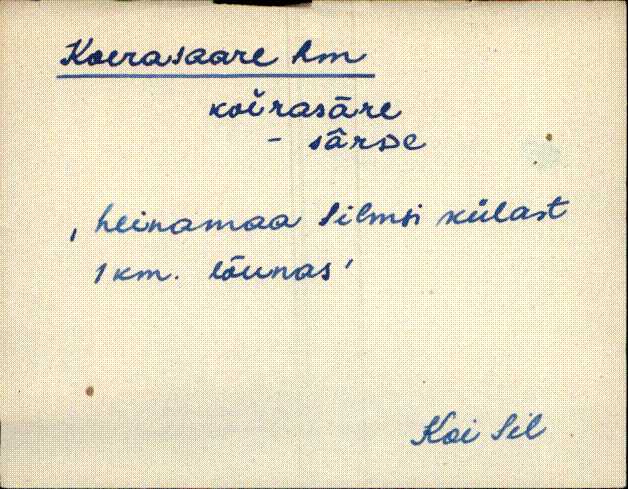 Koerasaare hm
koîrasāre
- sârde
, heinamaa Silmsi külast
1 km. lõunas'
Koi Sil